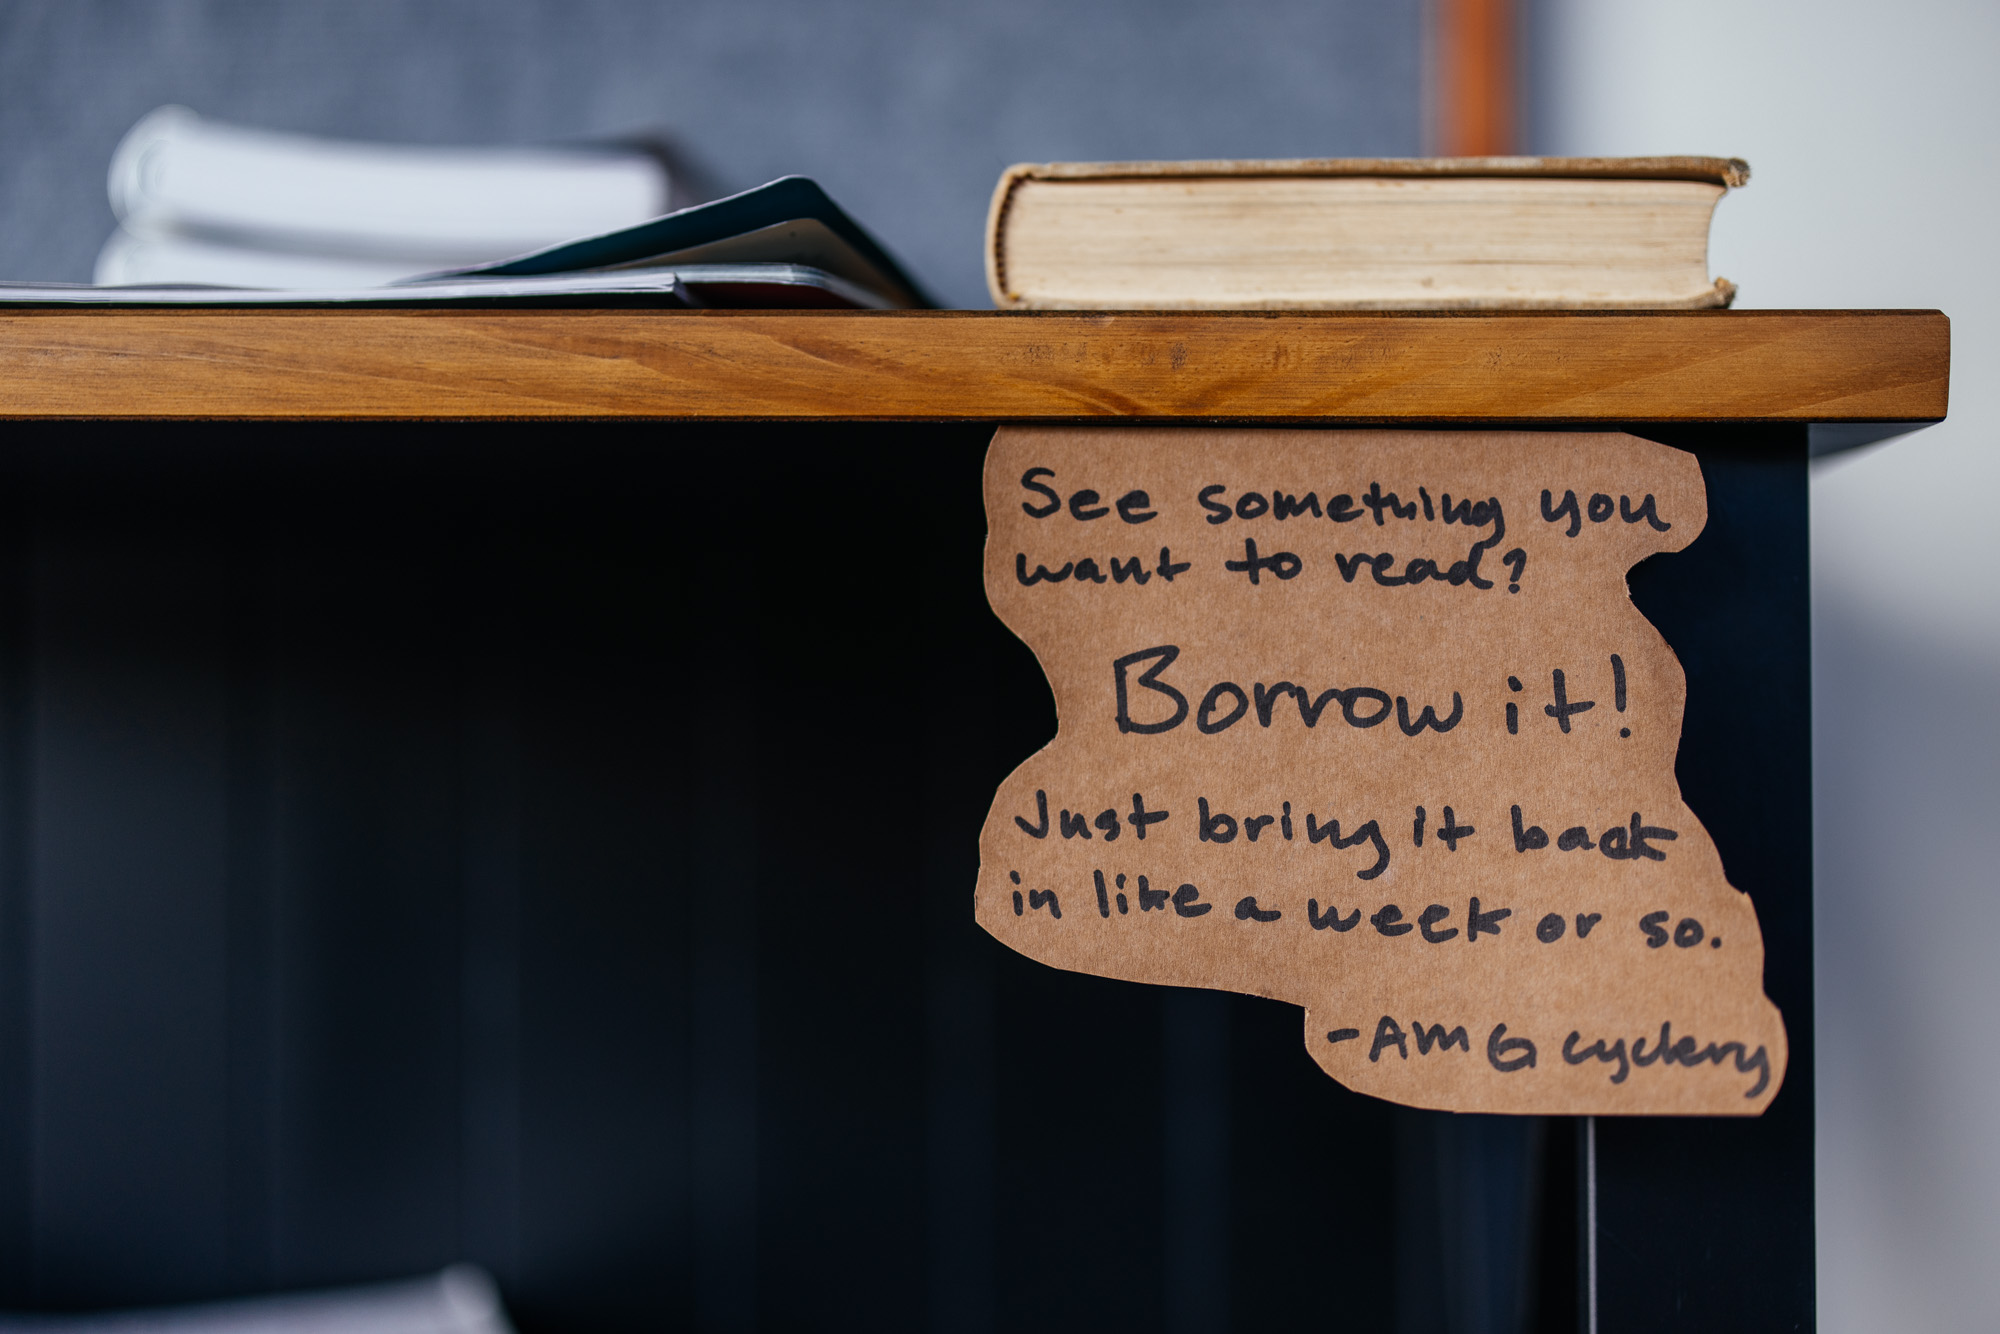 See something you
want to read?
Borrow it!
Just bring it back
in like a week or so.
-AMG cyclery